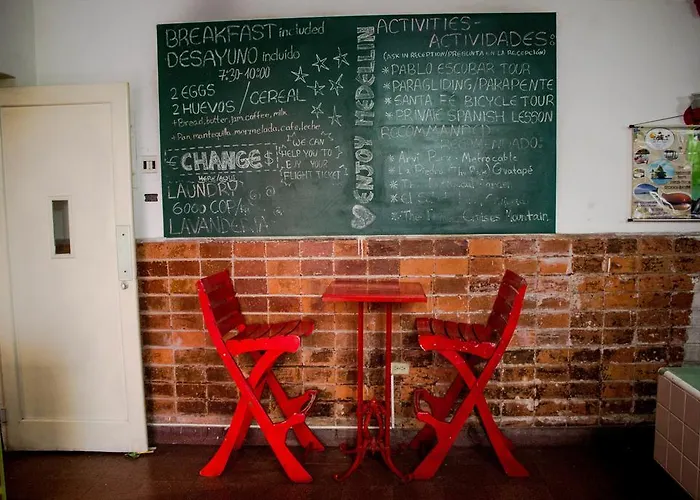 BREAKFAST included
DESAYUNO incluido
7:30-10:00
2 EGGS
2 HUEVOS / CEREAL
+ Bread, butter, jam, coffee, milk
+ Pan, mantequilla, mermelada, cafe, leche
€ CHANGE $
WE CAN
HELP YOU TO
BUY YOUR
FLIGHT TICKET
LAUNDRY
6000 COP/
LAVANDERIA
ENJOY MEDELLIN
ACTIVITIES -
ACTIVIDADES:
(ASK IN RECEPTION/PREGUNTA EN LA RECEPCIÓN)
* PABLO ESCOBAR TOUR
* PARAGLIDING/PARAPENTE
* SANTA FÉ BICYCLE TOUR
* PRIVATE SPANISH LESSON
RECOMMANDED
* Arvi Park - Metrocable
* La Piedra Guatapé
* The
* El
* The Mountain